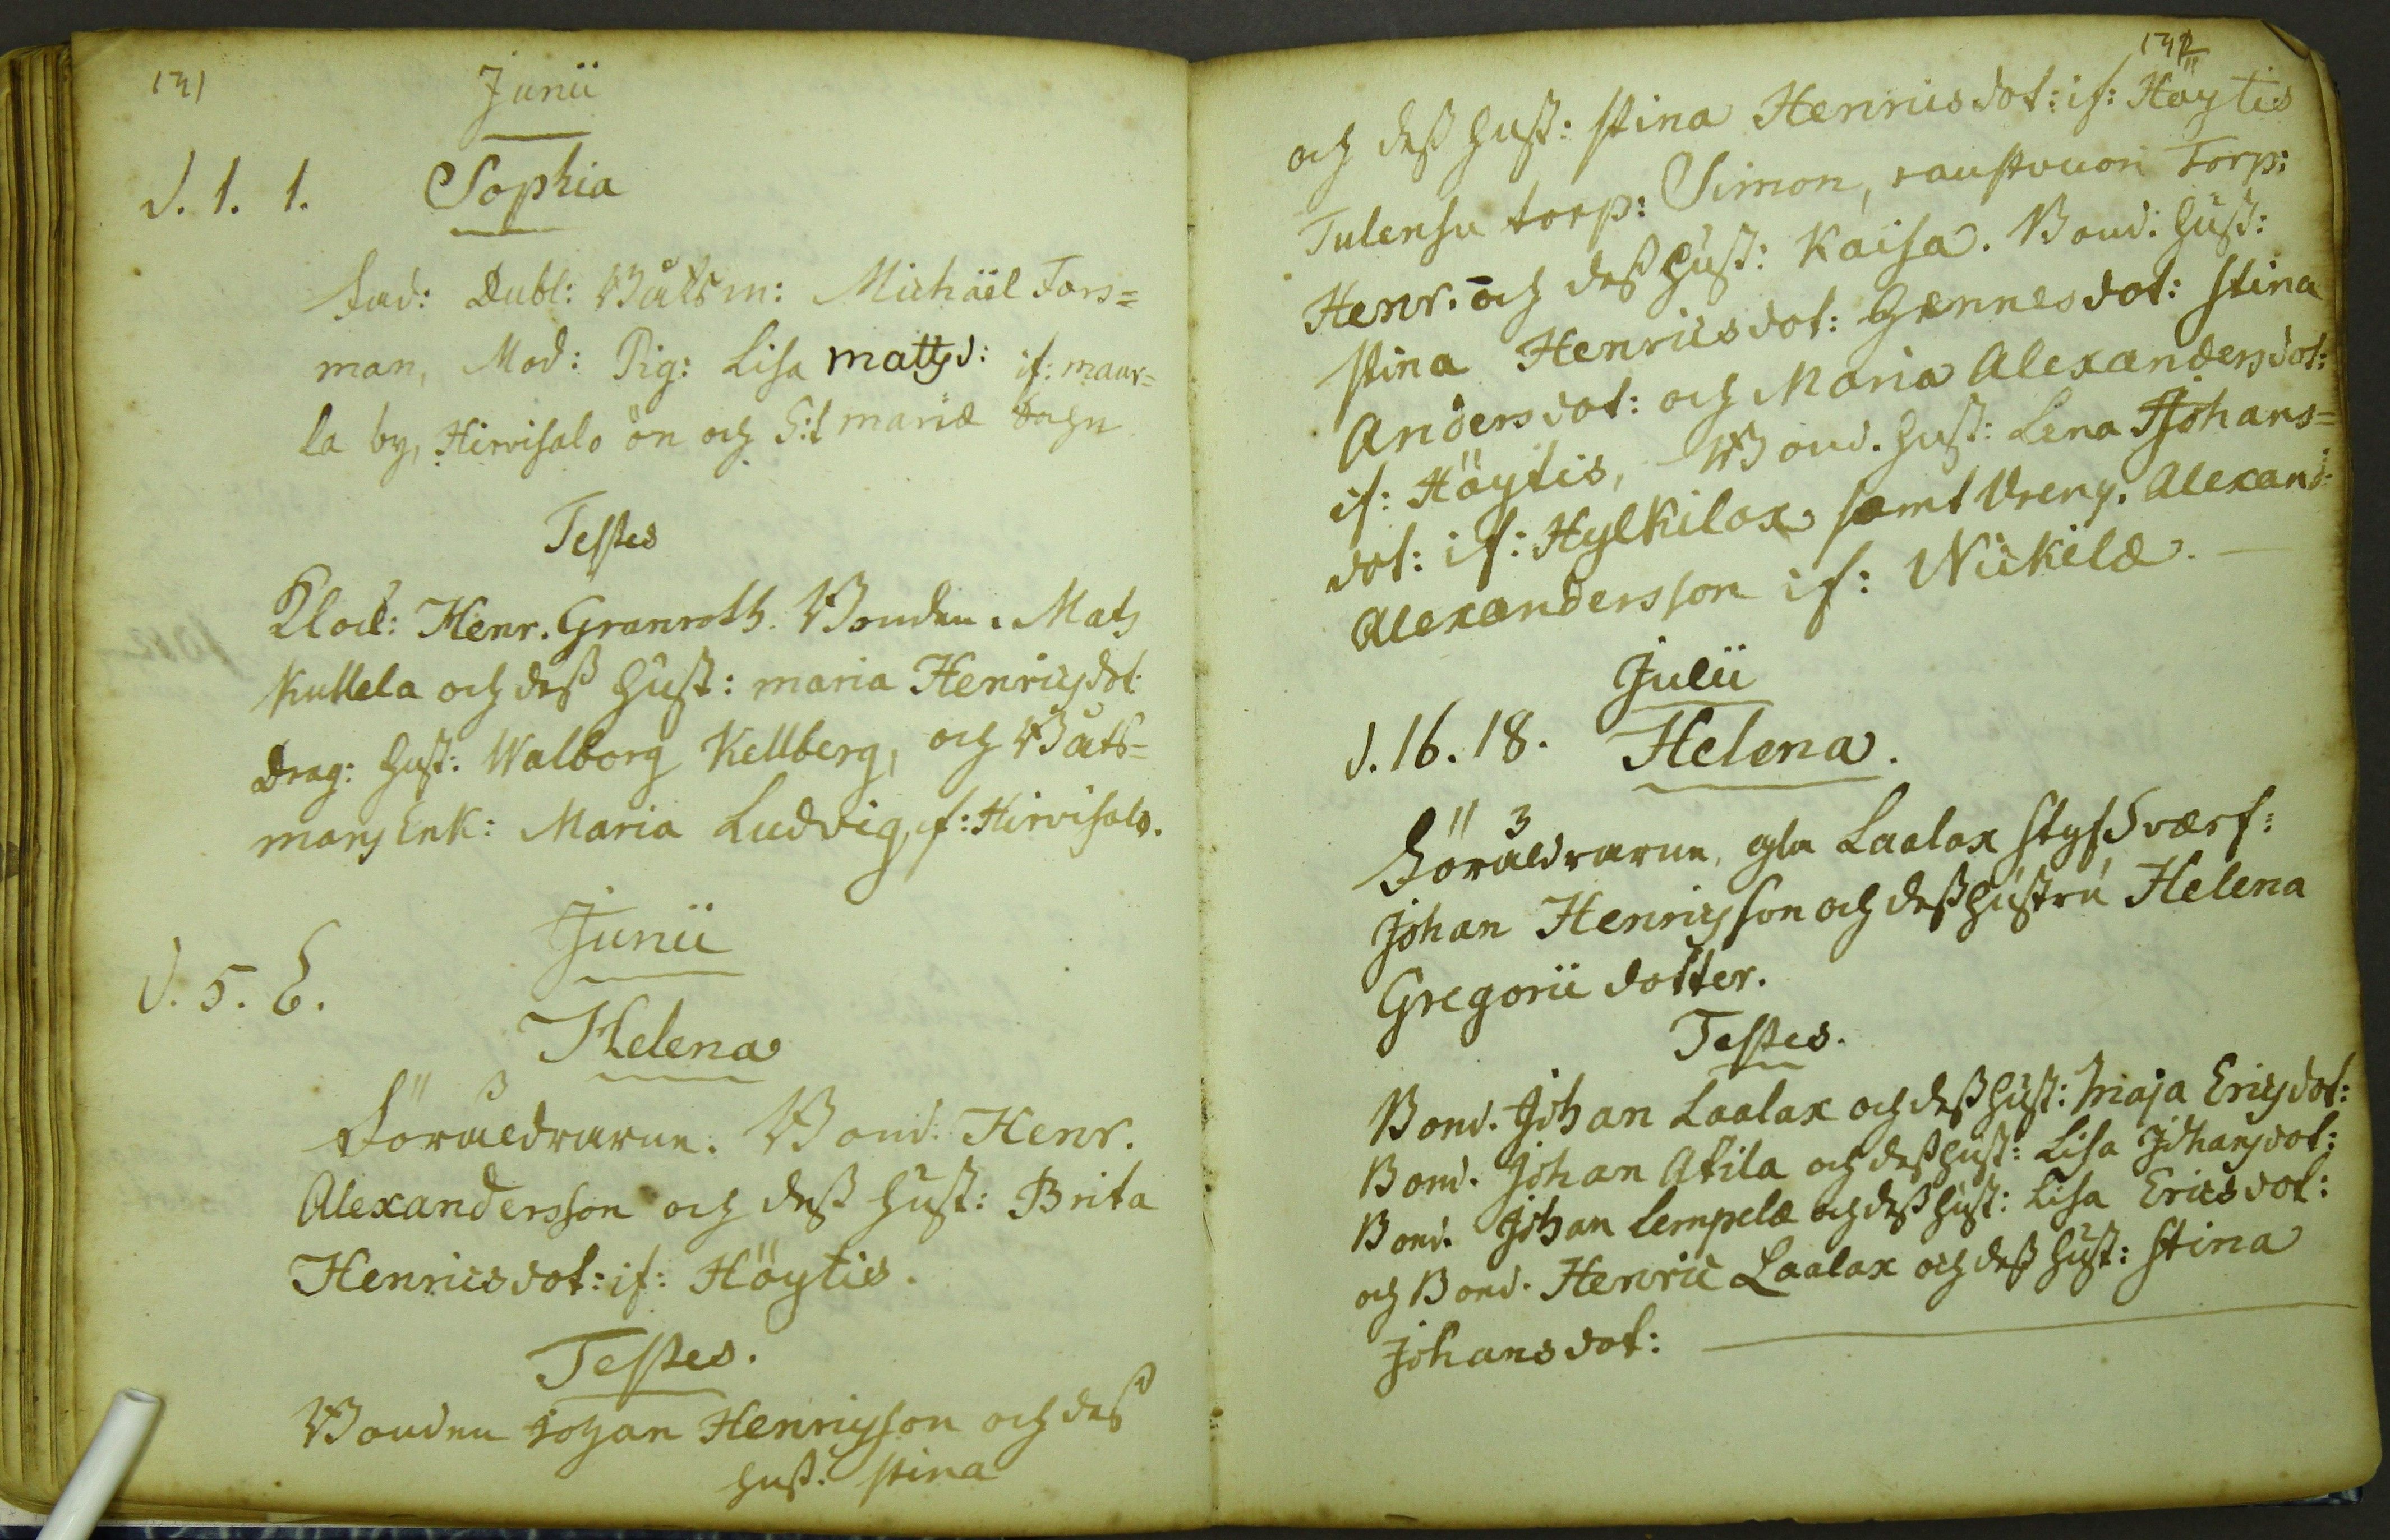 131
Junii
d. 1. 1. Sophia
fad: Dubl: Båtsm: Michäel Fors=
man, Mod: Pig: Lisa mattsd: if: maar=
la by, Hirvisalo ön och S:t mariæ
Testes
Klock: Henr. Granroth. Bonden. Mats
Kullela och dess Hust: maria Henricsdot:
Drag: Hust: Walborg Kellberg, och Båts=
mans Enk: Maria Ludvig, if: Hirvisalo.
Junii
d. 5. 6.
Helena
Föräldrarne. Bond. Henr.
Alexandersson och dess Hust: Brita
Henricsdot: if: Höytis.
Testes.
Bonden Johan Henricsson och dess
Hust: Stina
132
och dess Hust: Stina Henricsdot: if: Höytis
Tulensu torp: Simon, raustvuori Torp:
Henr. och dess Hust: Kaisa. Bond. Hust:
Stina Henricsdot: Hennes dot: Stina
Andersdot: och Maria Alexandersdot:
if: Höytis, Bond. Hust: Lena Johans=
dot: if: Hylkilax samt Dreng. Alexand:
Alexandersson if: Wickilä.
Julii
d. 16. 18. Helena.
Föräldrarne, gla Laalax
Johan Henricsson och dess Hustru Helena
Gregorii dotter.
Testes.
Bond. Johan Laalax och dess Hust: Maja Ericsdot:
Bond. Johan Atila och dess Hust: Lisa Johansdot:
Bond. Johan Lempelä och dess Hust: Lisa Ericsdot:
och Bond. Henric Laalax och dess Hust: Stina
Johansdot: